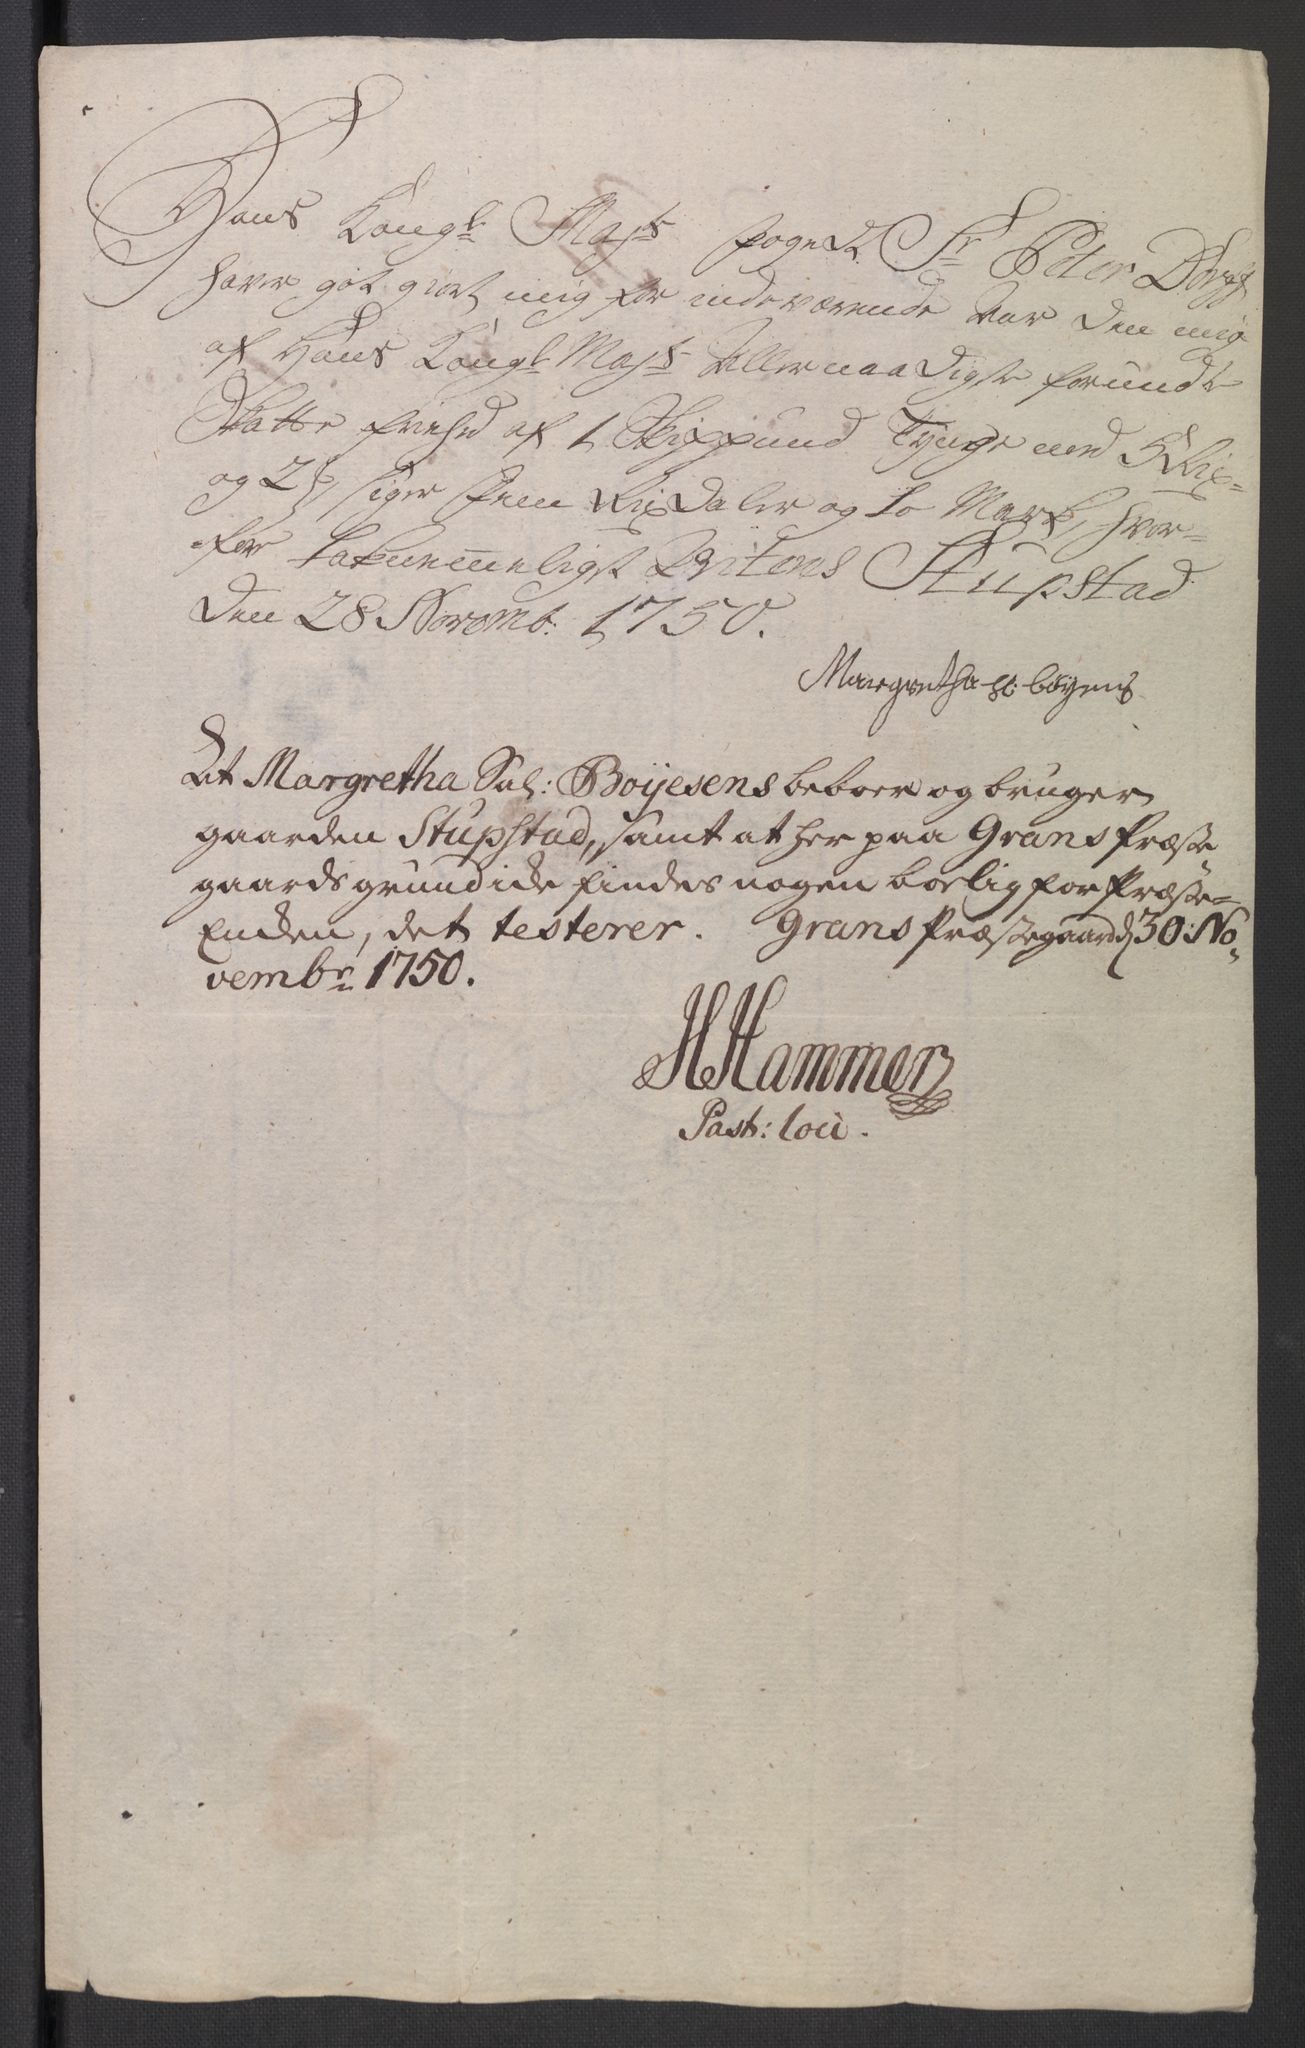 Hans Kongl Mayts foged Sr Peter Dorph
haver got giort mig for indeværende Aar den mig
af Hans Kongl Mayts Allernaadigst forundte
Skatte friehed af 1 Skippund Tynge med 5 Rix=
og 2 siger Fem Rixdaler og to Mark, hvor=
for takuemmeligst Qviteris Stupstad
den 28 Novemb: 1750.
Margretha Sl: böyens
At Margretha Sal: Boÿesens beboer og bruger
gaarden Stupstad, samt at her paa Grans Præste
gaards grund icke findes nogen boelig for Præste=
Enchen, det testerer. Grans Præstegaard d 30: No=
vembr 1750.
HHammer
Past: loci.